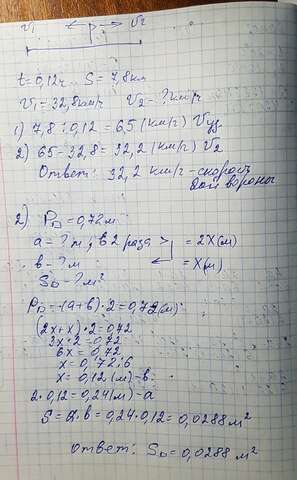 V₁ ← P → V₂
t=0,12ч S = 7,8км
V₁ = 32,8км/ч V₂ - ? км/ч
1) 7,8 : 0,12 = 65 (км/ч) Vуд
2) 65 - 32,8 = 32,2 (км/ч) V₂
Ответ: 32,2 км/ч - скорость
вороны
2) P▭ = 0,72м
a = ? м, в 2 раза > = 2x(м)
b = ? м = x(м)
S▭ = ? м²
P▭ = (a+b)·2 = 0,72(м)
(2x+x)·2 = 0,72
3x·2 = 0,72
6x = 0,72
x = 0,72:6
x = 0,12 (м) - b
2·0,12 = 0,24(м) - a
S = a·b = 0,24·0,12 = 0,0288 м²
Ответ: S▭ = 0,0288 м²